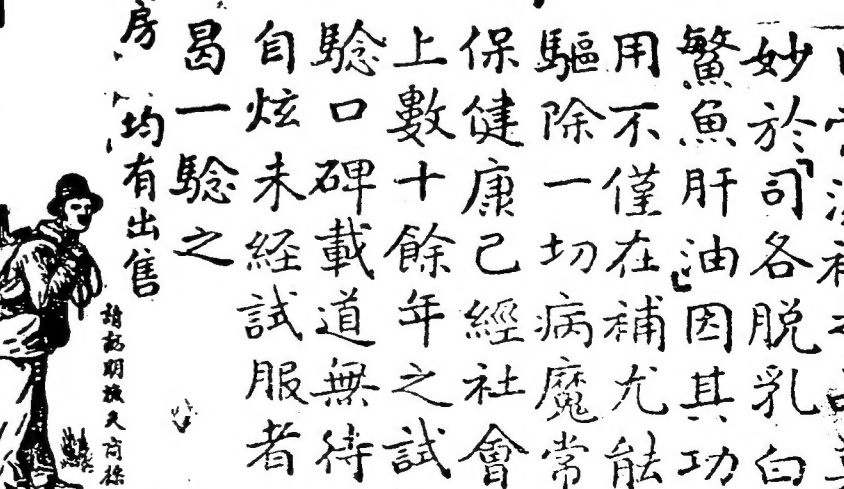 妙於「司各脱乳白
鰵魚肝油」因其功
用不僅在補尤能
驅除一切病魔常
保健康己經社會
上數十餘年之試
騐口碑載道無待
自炫未経試服者
曷一騐之
房均有出售
請認明漁夫商標